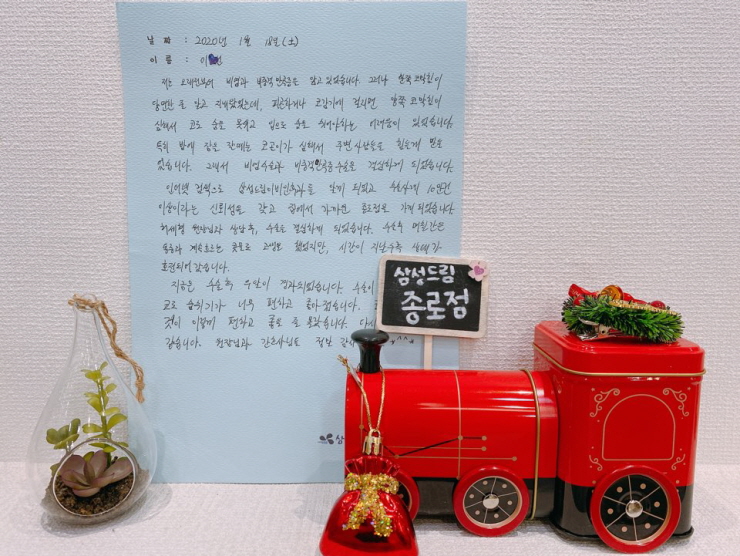 날 짜 : 2020년 1월 18일 (土)
이 름 : 이
저는 오래전부터 비염과 비중격만곡증을 앓고 있었습니다. 그러나 한쪽 코막힘이
당연한 줄 알고 지내왔었는데, 피곤하거나 코감기에 걸리면 양쪽 코막힘이
심해서 코로 숨을 못쉬고 입으로 숨을 쉬어야하는 어려움이 있었습니다.
특히 밤에 잠을 잘때는 코골이가 심해서 주변 사람들을 힘들게 한
없습니다. 그래서 비염수술과 비중격만곡증 수술을 결심하게 되었습니다.
인터넷 검색으로 삼성드림이비인후과를 알게 되었고 수술사례 10만건
이상이라는 신뢰성을 갖고 집에서 가까운 종로점을 가게 되었습니다
원장님과 상담후, 수술을 결심하게 되었습니다. 수술후 며칠간은
통증과 계속흐르는 콧물로 고생은 했었지만, 시간이 지날수록 상태가
호전되어 갔습니다.
지금은 수술 후 한달이 경과되었습니다. 수술
코로 숨쉬기가 너무 편하고 좋아졌습니다.
것이 이렇게 편하고 좋은 줄 몰랐습니다. 다시
같습니다. 원장님과 간호사님들 정말 감 ^^
삼성드림
종로점
삼